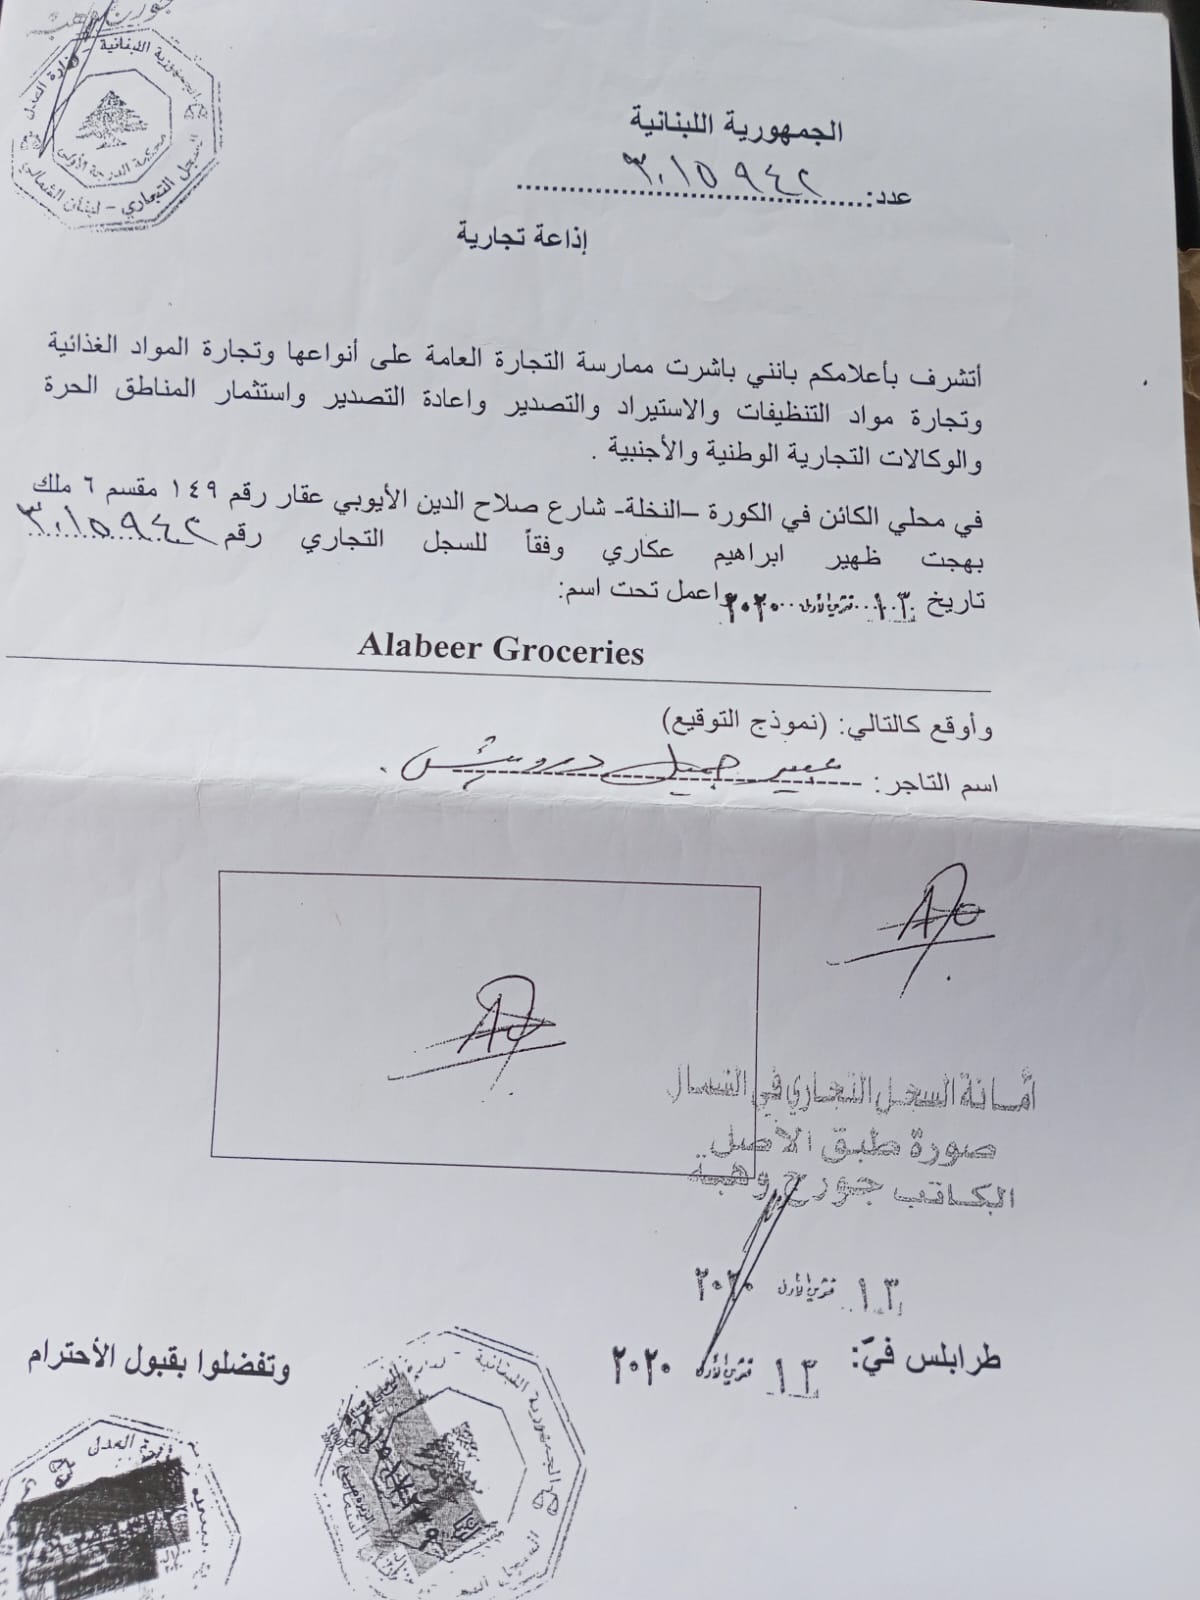 جورج وهبة
الجمهورية اللبنانية - وزارة العدل
محكمة الدرجة الأولى
السجل التجاري - لبنان الشمالي
الجمهورية اللبنانية
عدد: ٣٠١٥٩٤٢
إذاعة تجارية
أتشرف بأعلامكم بانني باشرت ممارسة التجارة العامة على أنواعها وتجارة المواد الغذائية
وتجارة مواد التنظيفات والاستيراد والتصدير واعادة التصدير واستثمار المناطق الحرة
والوكالات التجارية الوطنية والأجنبية .
في محلي الكائن في الكورة –النخلة- شارع صلاح الدين الأيوبي عقار رقم ١٤٩ مقسم ٦ ملك
بهجت ظهير ابراهيم عكاري وفقاً للسجل التجاري رقم ٣٠١٥٩٤٢
تاريخ ١٣ تشرين الأول ٢٠٢٠ واعمل تحت اسم:
Alabeer Groceries
وأوقع كالتالي: (نموذج التوقيع)
اسم التاجر: عبير جميل درويش
أمانة السجل التجاري في الشمال
صورة طبق الأصل
الكاتب جورج وهبة
١٣ تشرين الأول ٢٠٢٠
طرابلس فيّ: ١٣ تشرين الأول ٢٠٢٠
وتفضلوا بقبول الأحترام
الجمهورية اللبنانية - وزارة العدل
وزارة العدل